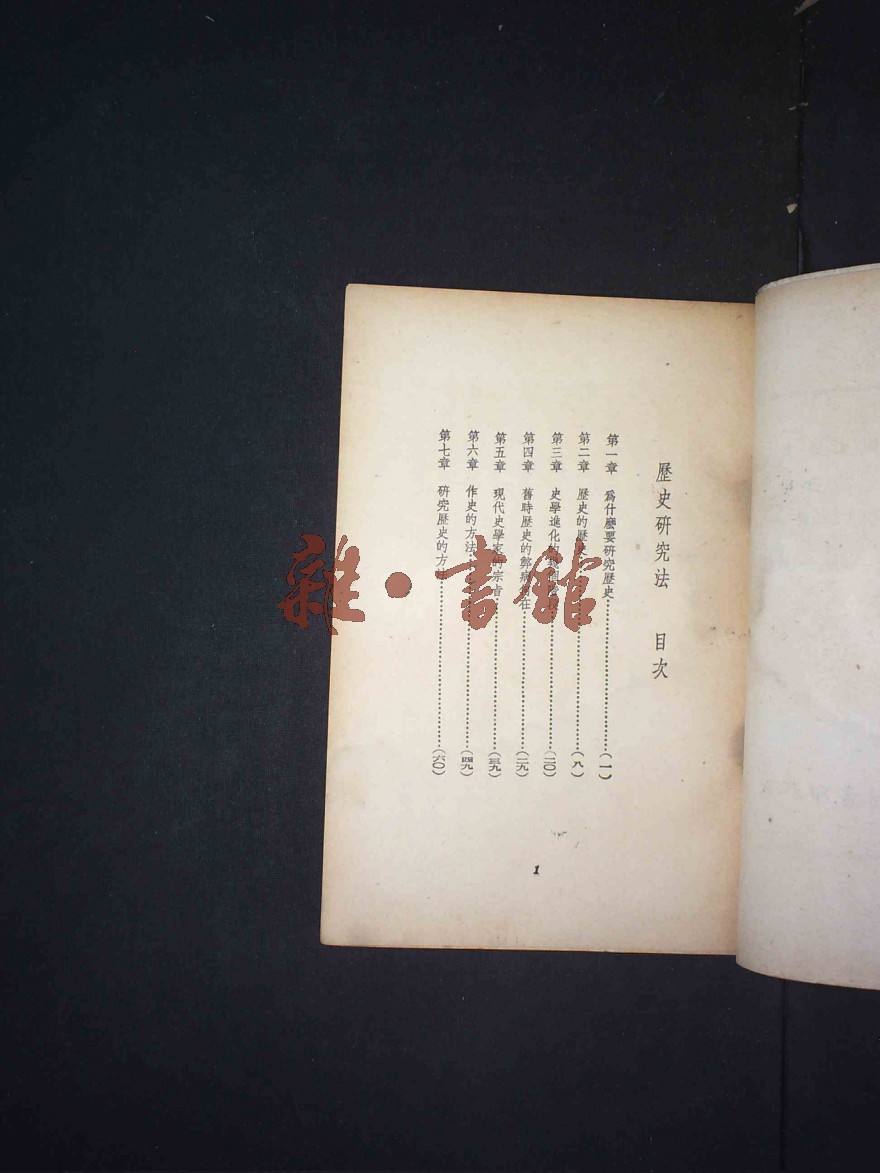 歷史研究法 目次
第一章 爲什麽要研究歷史……(一)
第二章 歷史的歷史……(八)
第三章 史學進化的……(二〇)
第四章 舊時歷史的弊病在……(二九)
第五章 現代史學家的宗旨……(三九)
第六章 作史的方法……(四九)
第七章 研究歷史的方法……(六〇)
1
雜·書館